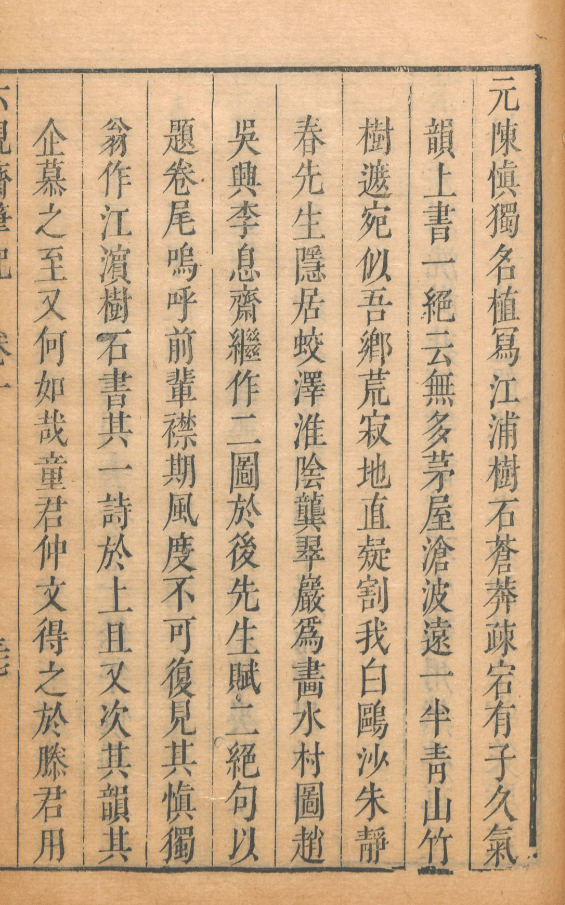 元陳慎獨名植冩江浦樹石蒼莽疎宕有子久氣
韻上書一絕云無多茅屋滄波遠一半靑山竹
樹遮宛似吾鄉荒寂地直疑割我白鷗沙朱靜
春先生隱居蛟澤淮陰龔翠巖爲畵水村圖趙
吳興李息齋繼作二圖於後先生賦二絕句以
題卷尾嗚呼前輩襟期風度不可復見其慎獨
翁作江濵樹石書其一詩於上且又次其韻其
企慕之至又何如哉童君仲文得之於縢君用
六硯齋筆記 卷一